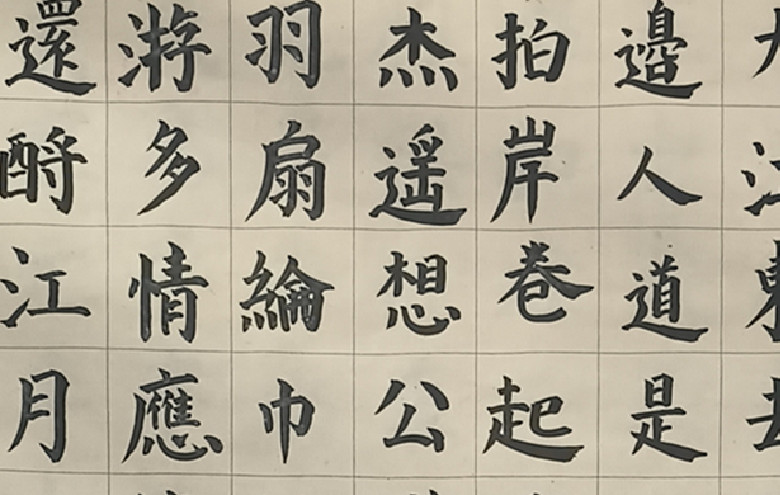 邊人道是
拍岸卷起
杰遥想公
羽扇綸巾
游多情應
還酹江月